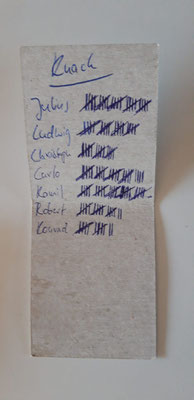 Knack
Julius
Ludwig
Christoph
Carlo
Kamil
Robert
Konrad